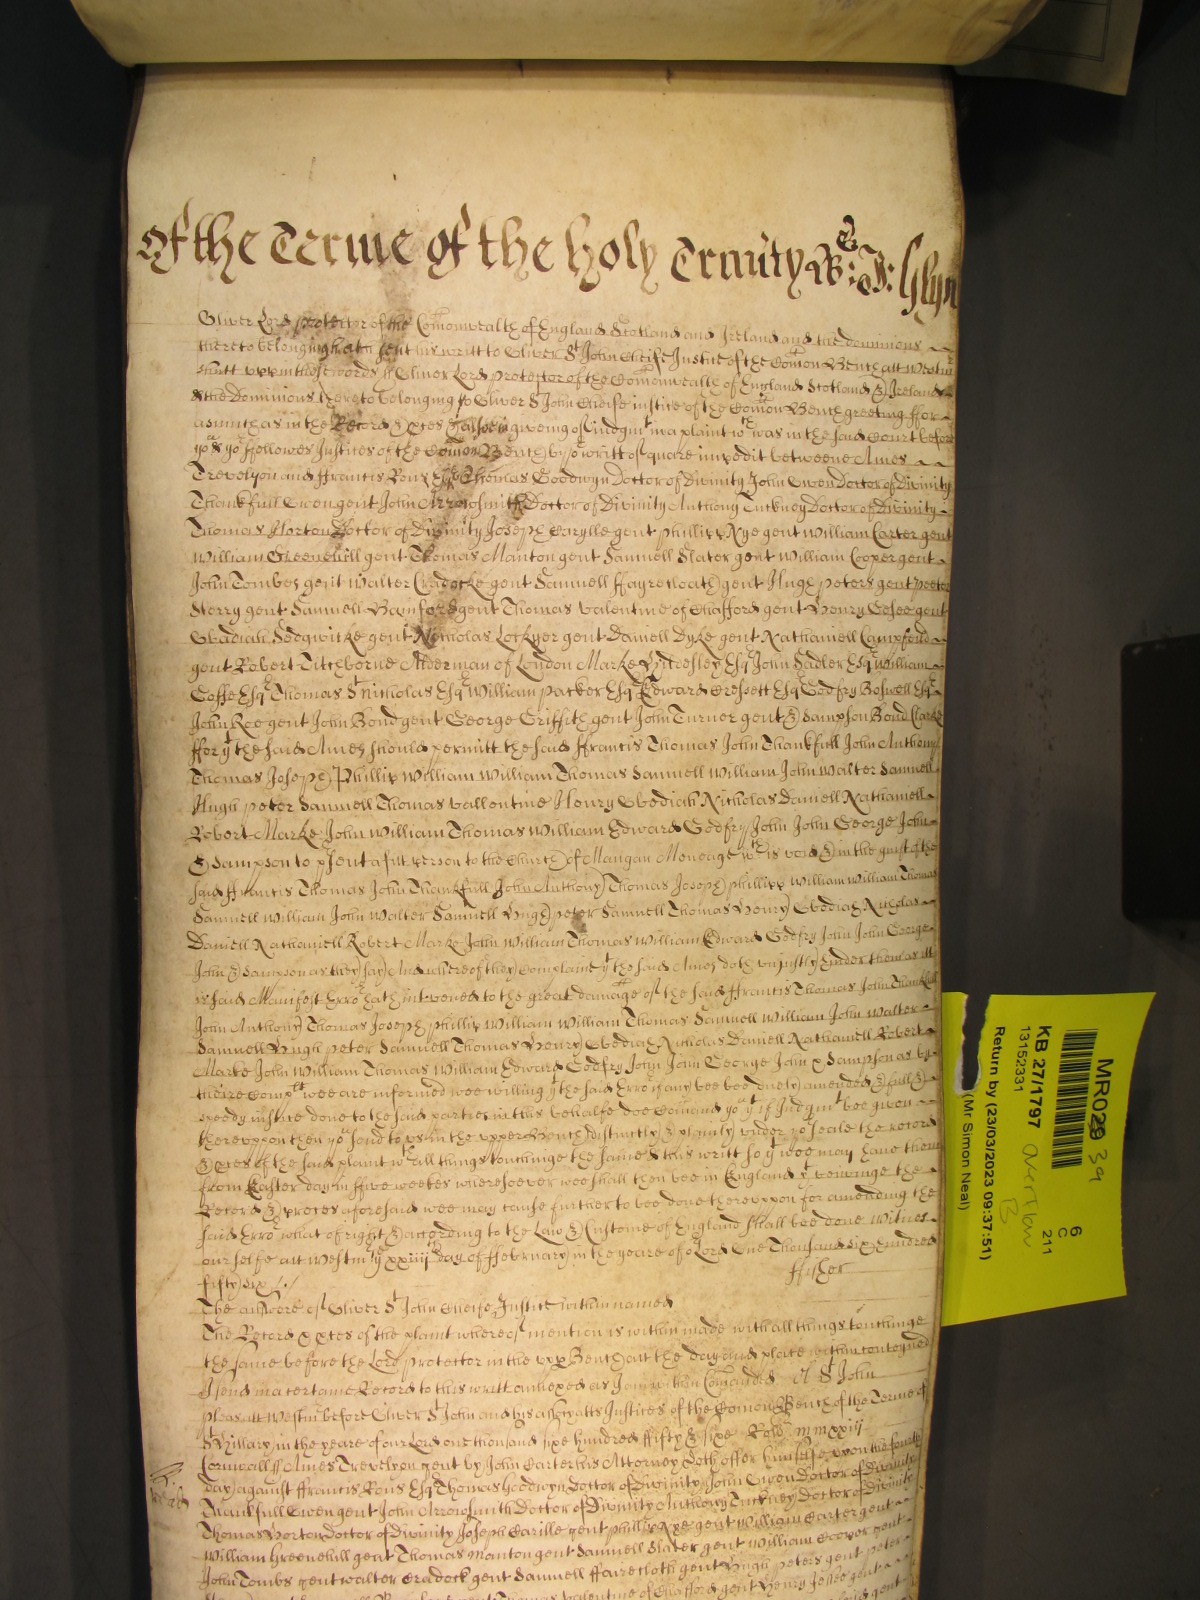 Of the Terme of the holy Trinity B: J: Glyn
Oliver Lord protector of the Comonwealth of England Scotland and Ireland and the dominions
thereto belonging hath sent his writt to Oliver St John Cheife Justice of the Comon Bench att Westm
writt in these words ss Oliver Lord protector of the Comonwealth of England Scotland & Ireland
& the Dominions thereto belonging to Oliver St John Cheife Justice of the Comon Bench greeting ffor
asmuch as in the Record & pces & also in giveing of Judgmt in a plaint wch was in the said Court before
yo & yor ffellowes Justices of the Comon Bench by or writt of quare impedit betweene Ames
Trevelyon and ffrancis Rous Esqr Thomas Goodwyn Doctor of Divinity John Owen Doctor of divinity
Thankfull Owen gent John Arrowsmith Doctor of Divinity Anthony Tuckney Doctor of divinity
Thomas Horton Doctor of Divinity Joseph Carylle gent phillipp Nye gent William Carter gent
William Greenehill gent Thomas Manton gent Samuell Slater gent William Cooper gent
John Tombes gent Walter Cradocke gent Samuell ffayrecloath gent Hugh peters gent peeter
Sterry gent Samuell Bamford gent Thomas valentine of Chafford gent Henry Jesse gent
Obadiah Sedgwicke gent Nicholas Lockyer gent Daniell Dyke gent Nathaniell Campfeild
gent Robert Titchborne Alderman of London Marke Hildesley Esqr John Sadler Esqr William
Goffe Esqr Thomas St nicholas Esqr William packer Esqr Edward Cressett Esqr Godfry Boswell Esqr
John Roe gent John Bond gent George Griffith gent John Turner gent & Sampson Bond Clarke
ffor yt the said Ames should permitt the said ffrancis Thomas John Thankfull John Anthony
Thomas Joseph Phillip William William Thomas Samuell William John Walter Samuell
Hugh peter Samuell Thomas vallentine Henry Obediah Nicholas Daniell Nathaniell
Robert Marke John William Thomas William Edward Godfry John John George John
& Sampson to psent a fitt person to the Church of Maugan Meneage wch is void & in the guift of the
said ffrancis Thomas John Thankfull John Anthony Thomas Joseph phillipp William William Thomas
Samuell William John Walter Samuell Hugh peter Samuell Thomas Henry Obediah Nicholas
Daniell Nathaniell Robert Marke John William Thomas William Edward Godfry John John George
John & Sampson as they say And whereof they complaine yt the said Ames doth uniustly hinder them as itt
is said Manifest Error hath intervened to the great damage of the said ffrancis Thomas John Thankfull
John Anthony Thomas Joseph phillip William William Thomas Samuell William John Walter
Samuell Hugh peter Samuell Thomas Henry Obediah Nicholas Daniell Nathaniell Robert
Marke John William Thomas William Edward Godfry John John George John & Sampson as by
theire complt wee are informed wee willing yt the said Error if any bee bee duely amended & full &
speedy iustice done to the said parties in this behalfe doe Comand yo yt if Judgmt bee given
thereuppon then yo send to us in the upper Bench distinctly & plainly under yor seale the record
& pces of the said plaint wth all things touchinge the same & this writt so yt wee may have them
from Easter day in ffive weekes wheresoever wee shall then bee in England yt veiwinge the
Record & proces aforesaid wee may cause further to bee done thereuppon for amending the
said Error what of right & according to the Law & Custome of England shall bee done Witnes
our selfe att Westmr ye xxiiijth day of ffebruary in the yeare of or Lord One Thousand six hundred
fifty six
ffisher
The answere of Oliver St John Cheife Justice within named
The Record & pces of the plaint whereof mention is within made with all things touchinge
the same before the Lord protector in the upp Bench att the day and place within conteyned
I send in a certaine Record to this writt annexed as I am within Comanded O St John
pleas att Westmr before Oliver St John and his assotyatts Justices of the Comon Bench of the Terme of
St Hillary in the yeare of our Lord one thousand sixe hundred ffifty & sixe Rollo mmxxiij
Cornwall ss Ames Trevelyon gent by John Carter his Attorney doth offer himselfe uppon the fourth
day against ffrancis Rous Esqr Thomas Goodwyn Doctor of Divinity John Owen Doctor of Divinity
Thankfull Owen gent John Arrowsmith Doctor of Divinity Anthony Tuckney Doctor of Divinity
Thomas Horton Doctor of Divinity Joseph Carille gent phillip Nye gent William Carter gent
William Greenehill gent Thomas Manton gent Samuell Slater gent William Cooper gent
John Tombs gent Walter Cradock gent Samuell ffairecloth gent Hugh peters gent peter
Thomas valentine of Chafford gent Henry Jessee gent
MR029 39
6
C
211
KB 27/1797
overflow
B
13152331
Return by (23/03/2023 09:37:51)
(Mr Simon Neal)